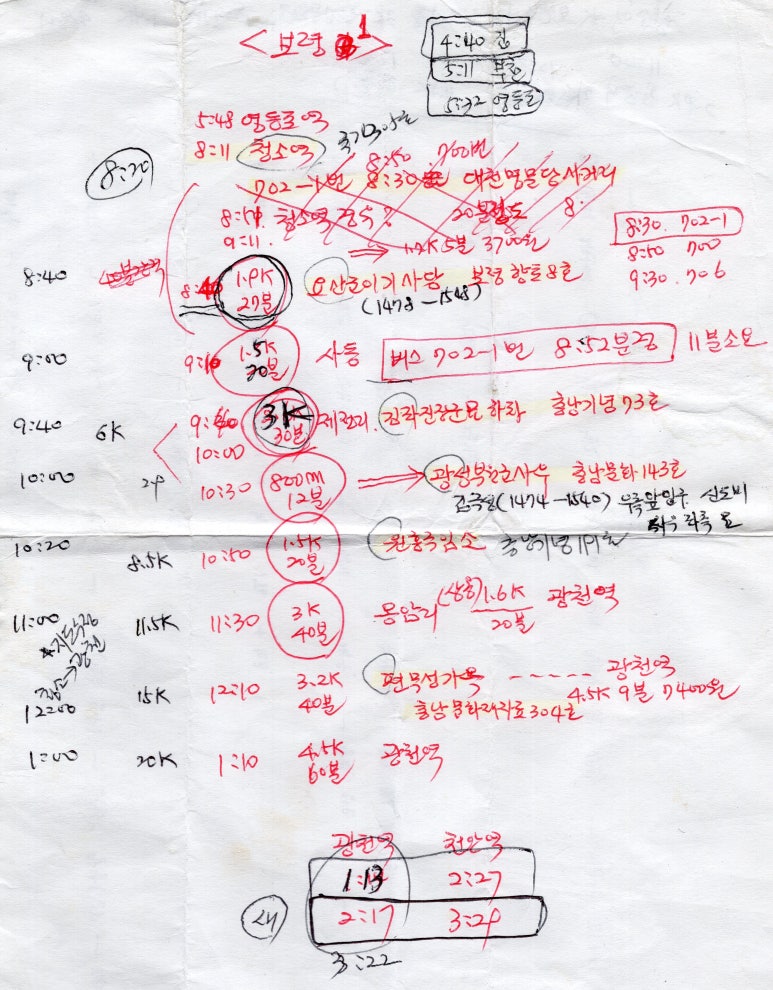 <보령 1>
4:40 집
5:11 부천
5:32 영등포
5:48 영등포역
8:11 청소역
8:20
8:50 700번
702-1번 8:30 대천명문당사거리
8:51 청소역 20분정도 8.
9:11. ⇒ 1.2K 5분 3700원
8:30. 702-1
8:50 700
9:30. 706
8:40 1.9K 27분 이지사당 보령향토8호
(1478-1548)
9:00 9:10 1.5K 30분 사동 버스 702-1번 8:52분경 11분소요
9:40 6K 3K 30분 김좌진장군묘 충남기념73호
10:00
10:00 10:30 800m 12분 → 광성부원군사우 충남문화143호
김극성(1474-1540) 우측앞입구 신도비
좌측 묘
10:20 8.5K 10:50 1.5K 20분
11:00 11.5K 11:30 3K 40분 몽암리 1.6K 20분 광천역
12:00 15K 12:10 3.2K 40분 편무성가옥 ----- 광천역
4.5K 9분 7400원
충남문화재자료304호
1:00 20K 1:10 4.5K 60분 광천역
광천역 천안역
1:13 2:27
새 2:17 3:29
3:22